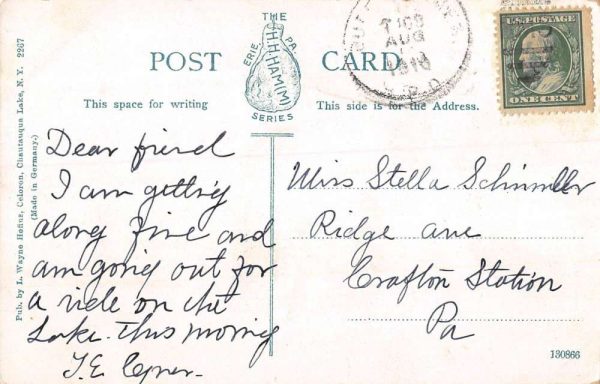 THE
ERIE, PA.
H.H.HAM(M)
SERIES
POST CARD
This space for writing
This side is for the Address.
AUG
1910
U.S. POSTAGE
ONE CENT
Pub. by L. Wayne Hofius, Celoron, Chautauqua Lake, N. Y. 2267
(Made in Germany.)
Dear friend
I am getting
along fine and
am going out for
a ride on the
Lake. this morning
T.E.
Miss Stella
Ridge ave
Crafton Station
Pa
130866